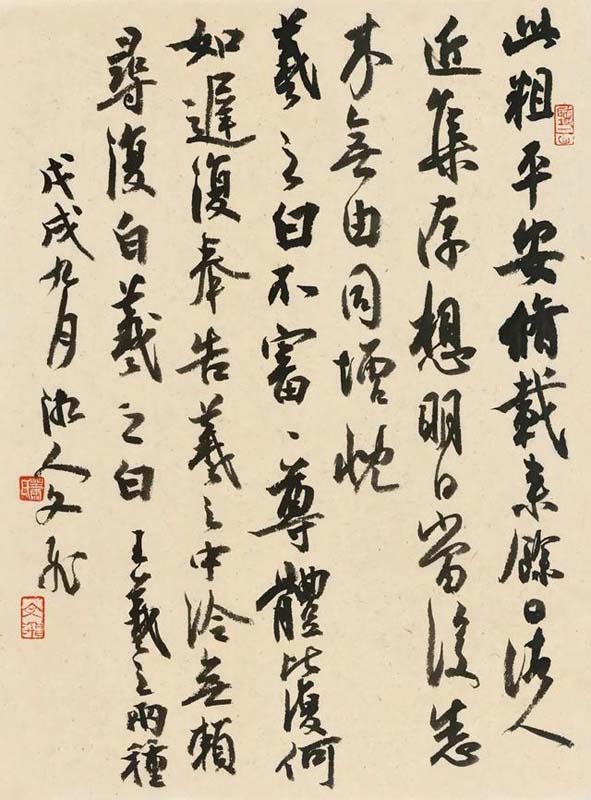 此粗平安脩載来餘日諸人
近集存想明日當復悉
来無由同增慨
羲之白不審、尊體比復何
如遲復奉告羲之中冷無賴
尋復白羲之白 王羲之兩種
戊戌九月 湘人文飛
文飛